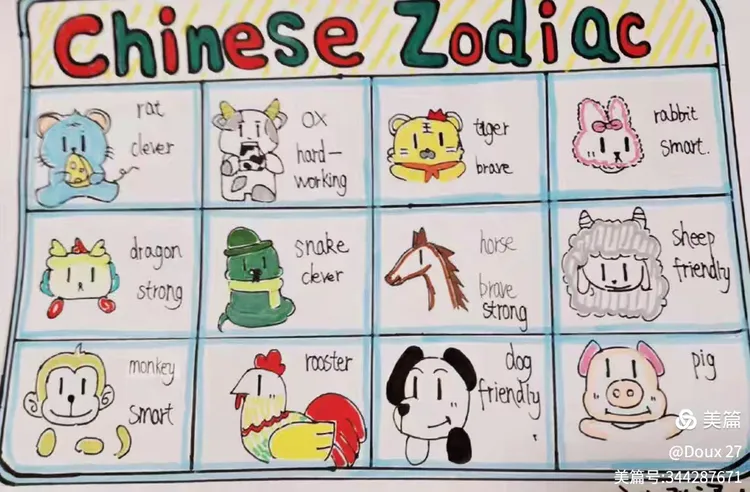 Chinese Zodiac
rat
clever
ox
hard-
working
tiger
brave
rabbit
smart.
dragon
strong
snake
clever
horse
brave
strong
sheep
friendly
monkey
smart
rooster
dog
friendly
pig
美篇
@Doux 27
美篇号:344287671